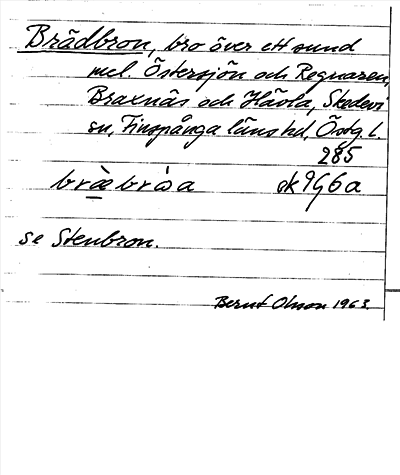 Brädbron, bro över ett sund
mel. Östersjön och Regnaren,
Braxnäs och Hävla, Skedevi
sn, Finspånga läns hd, Östg. l.
285
bræ̀brωa ek 9G6a
se Stenbron.
Bernt Olsson 1963.